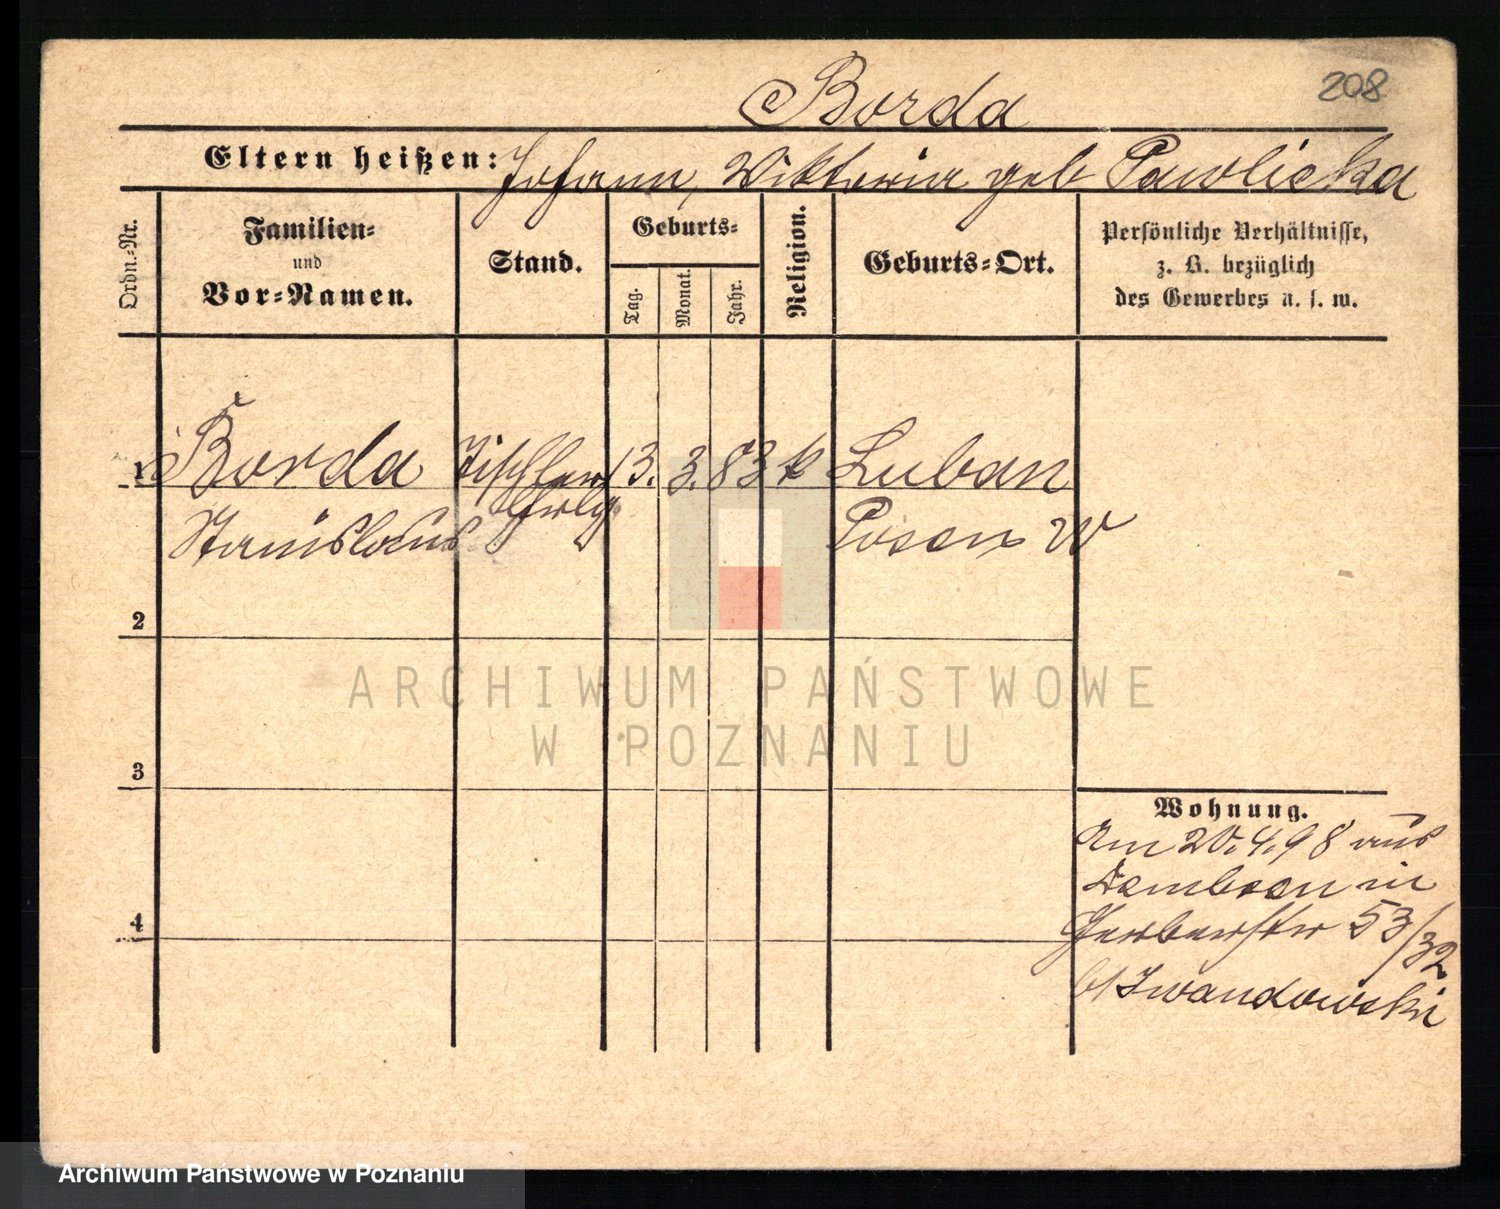 208
Borda
Eltern heißen: Johann, Wiktoria geb Pawlicka
Ordn.-Nr.
Familien-
und
Vor-Namen.
Stand.
Geburts-
Tag.
Monat.
Jahr.
Religion.
Geburts-Ort.
Persönliche Verhältnisse,
z. B. bezüglich
des Gewerbes u. s. w.
1 Borda Tischler 13. 3. 83 k Luban
Stanislaus Posen W
2
3
4
Wohnung.
Am 20.4.98 aus
Dembsen in
Gerberstr 53/32
b/Iwandowski
ARCHIWUM PAŃSTWOWE
W POZNANIU
Archiwum Państwowe w Poznaniu